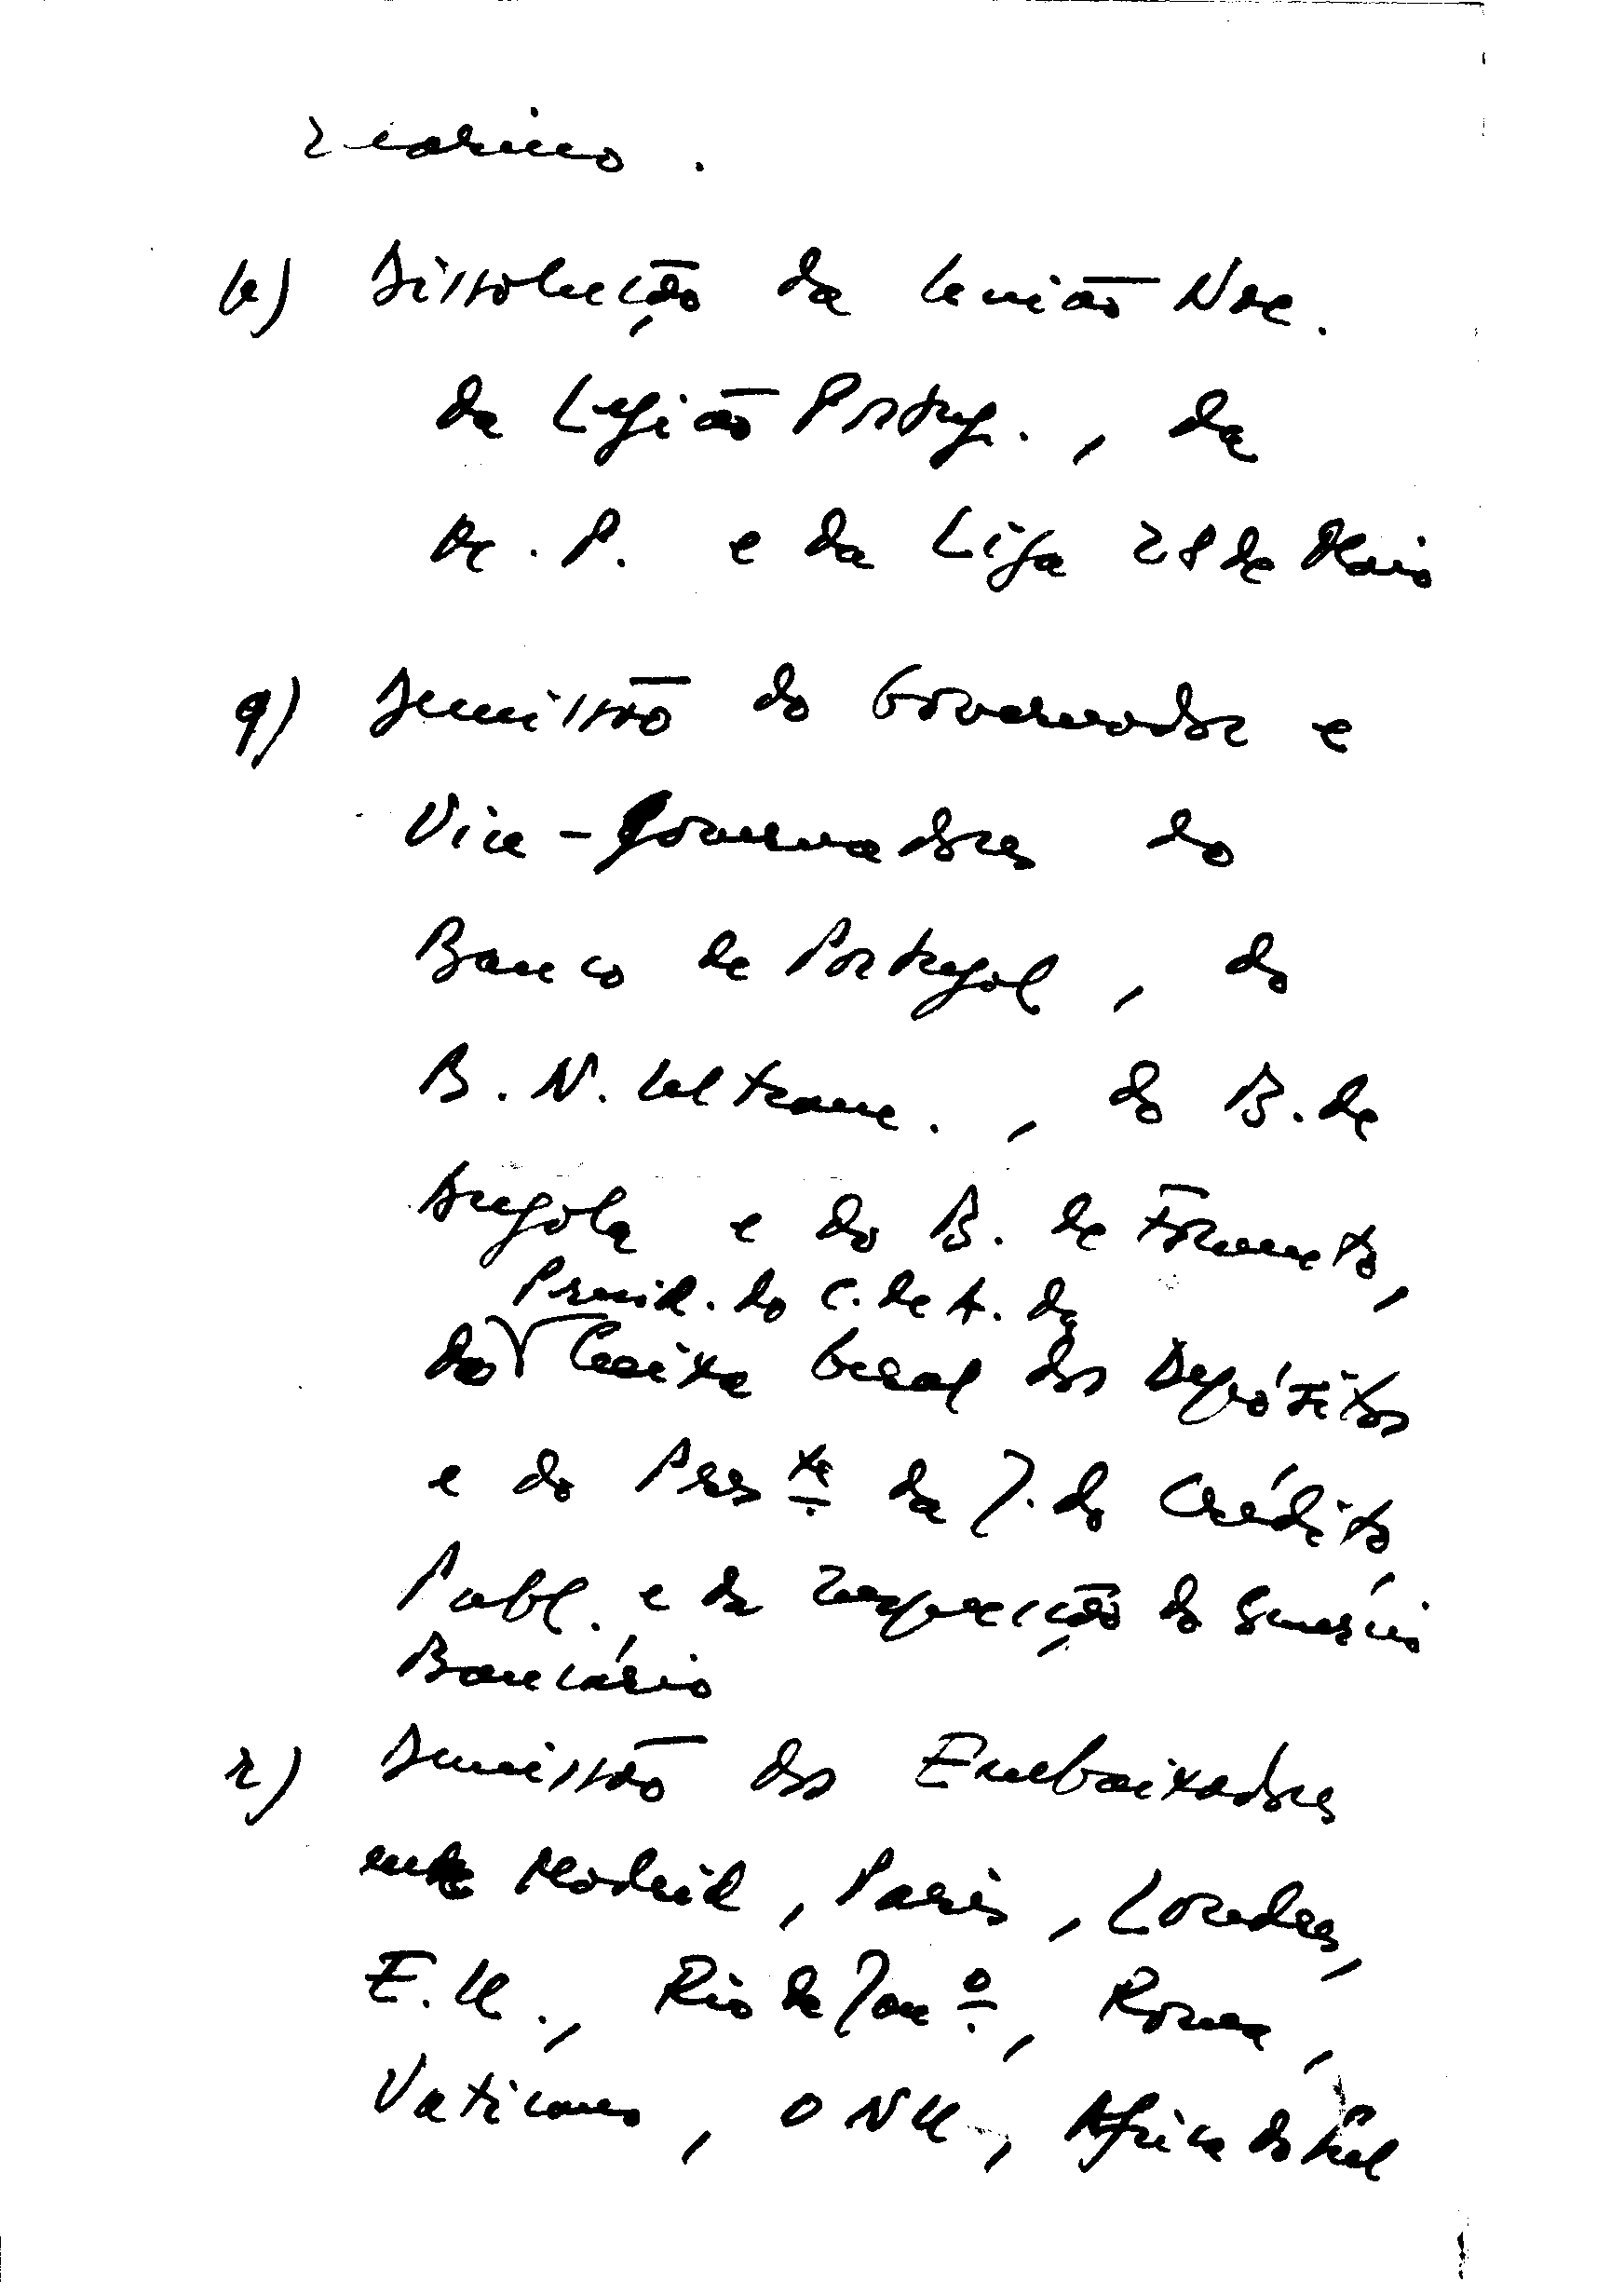 p) Dissolução da União Nac.
da Legião Portug., da
M. P. e da Liga 28 de Maio
q) Demissão do Governador e
Vice-Governadores do
Banco de Portugal, do
B. N. Ultram., do B. de
Angola e do B. de Fomento,
Presid. do C. de A. da
do Caixa Geral dos Depósitos
e do Pres.te da J. do Crédito
Publ. e da Inspecção do Comércio
Bancário
r) Demissão dos Embaixadores
em Madrid, Paris, Londres,
E.U., Rio de Jan.º, Roma,
Vaticano, ONU, Africa do Sul